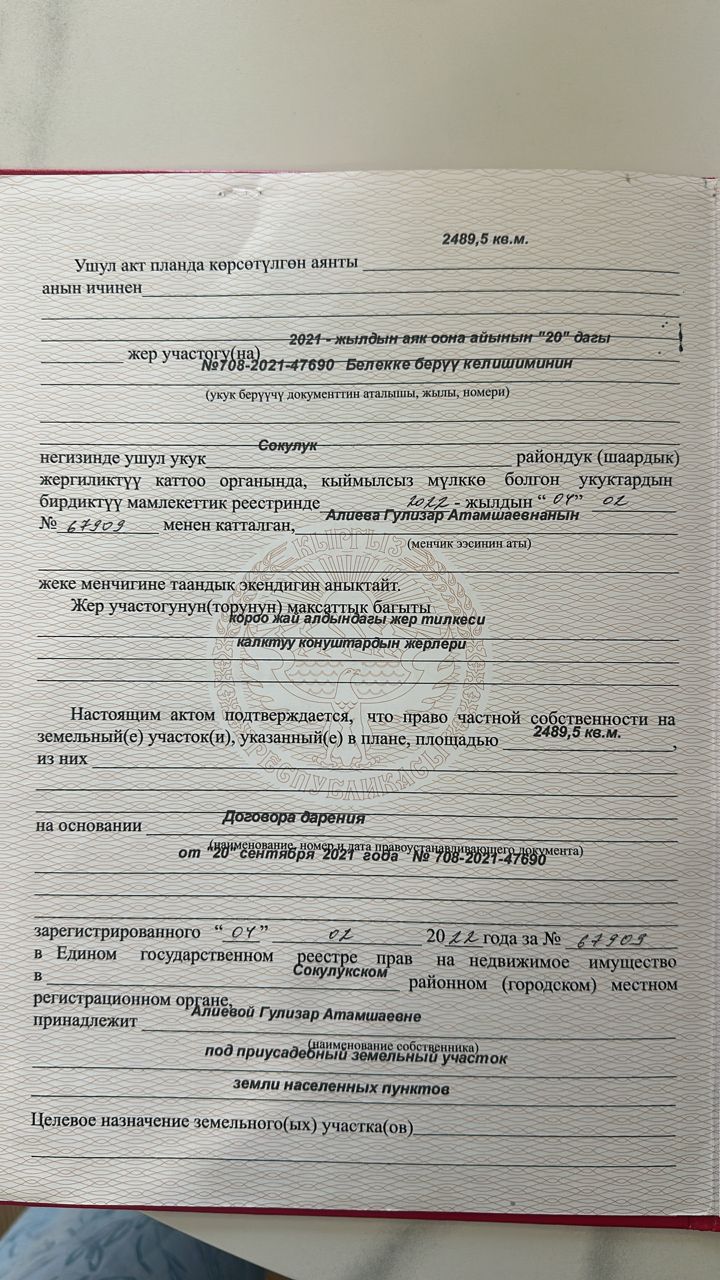 2489,5 кв.м.
Ушул акт планда көрсөтүлгөн аянты
анын ичинен
2021 - жылдын аяк оона айынын "20" дагы
жер участогу(на)
№708-2021-47690 Белекке берүү келишиминин
(укук берүүчү документтин аталышы, жылы, номери)
Сокулук
негизинде ушул укук райондук (шаардык)
жергиликтүү каттоо органында, кыймылсыз мүлккө болгон укуктардын
бирдиктүү мамлекеттик реестринде 2022 - жылдын “ 04” 02
Алиева Гулизар Атамшаевнанын
№ 67909 менен катталган,
(менчик ээсинин аты)
КЫРГЫЗ
жеке менчигине таандык экендигин аныктайт.
Жер участогунун(торунун) максаттык багыты
короо жай алдындагы жер тилкеси
калктуу конуштардын жерлери
Настоящим актом подтверждается, что право частной собственности на
2489,5 кв.м.
земельный(е) участок(и), указанный(е) в плане, площадью ,
из них
РЕСПУБЛИКАСЫ
Договора дарения
на основании
(наименование, номер и дата правоустанавливающего документа)
от "20 сентября 2021 года № 708-2021-47690
зарегистрированного “ 04 ” 02 2022 года за № 67909
в Едином государственном реестре прав на недвижимое имущество
Сокулукском
в районном (городском) местном
регистрационном органе,
Алиевой Гулизар Атамшаевне
принадлежит
(наименование собственника)
под приусадебный земельный участок
земли населенных пунктов
Целевое назначение земельного(ых) участка(ов)